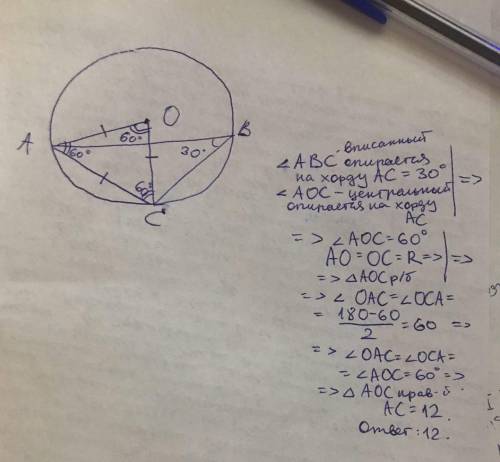 O
A
B
60°
60°
30°
60°
C
вписанный
∠ABC опирается
на хорду AC = 30°
∠AOC – центральный
опирается на хорду
AC
=>
=> ∠AOC = 60°
AO = OC = R => =>
=> △AOC р/б
=> ∠ OAC = ∠OCA =
= 180-60
2
= 60 =>
=> ∠OAC = ∠OCA =
= ∠AOC = 60° =>
=> △ AOC прав-й
AC = 12.
Ответ: 12.